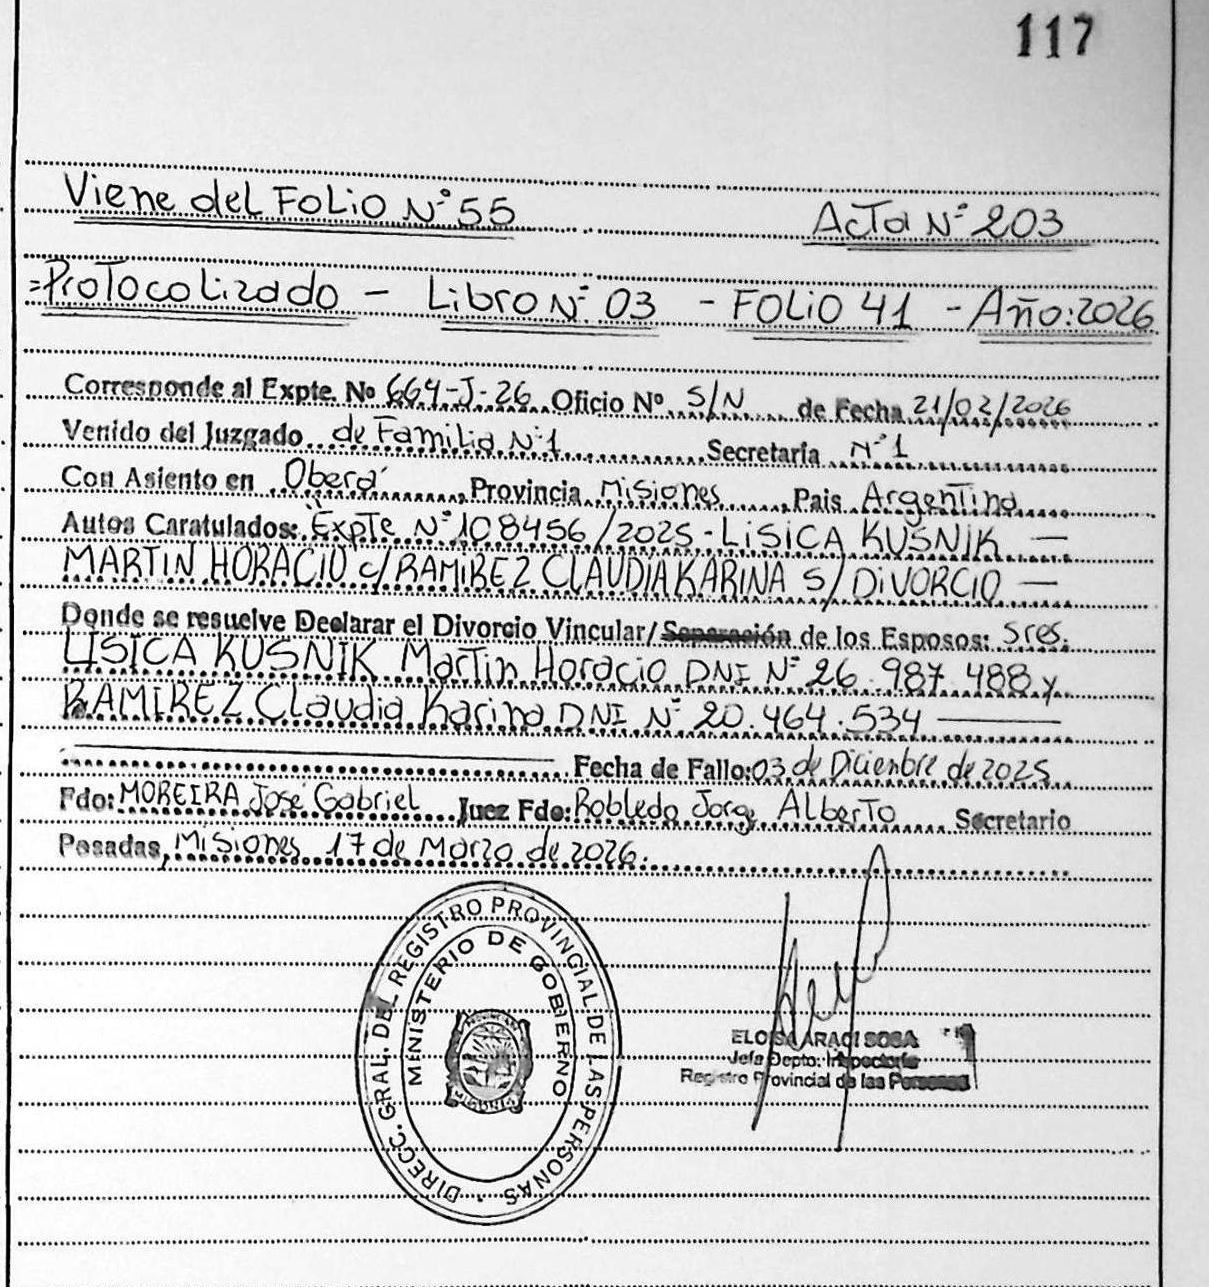 117
Viene del FOLIO N° 55
Acta N° 203
=Protocolizado - Libro N° 03 - FOLIO 41 - Año: 2026
Corresponde al Expte. Nº 664-J-26 Oficio Nº S/N de Fecha 21/02/2026
Venido del Juzgado de Familia N°1 Secretaría N°1
Con Asiento en Oberá Provincia Misiones Pais Argentina
Autos Caratulados: Expte N° 108456/2025 - LISICA KUSNIK —
MARTIN HORACIO c/ RAMIREZ CLAUDIA KARINA s/ DIVORCIO —
Donde se resuelve Declarar el Divorcio Vincular/Separación de los Esposos: Sres.
LISICA KUSNIK Martin Horacio DNI N° 26.987.488 y
RAMIREZ Claudia Karina DNI N° 20.464.534 —
Fecha de Fallo: 03 de Diciembre de 2025
Fdo: MOREIRA José Gabriel Juez Fdo: Robledo Jorge Alberto Secretario
Posadas, Misiones 17 de Marzo de 2026.
DIRECC. GRAL. DEL REGISTRO PROVINCIAL DE LAS PERSONAS
MINISTERIO DE GOBIERNO
MISIONES
ELOISA ARACI SOSA
Jefa Depto. Inspectoría
Registro Provincial de las Personas